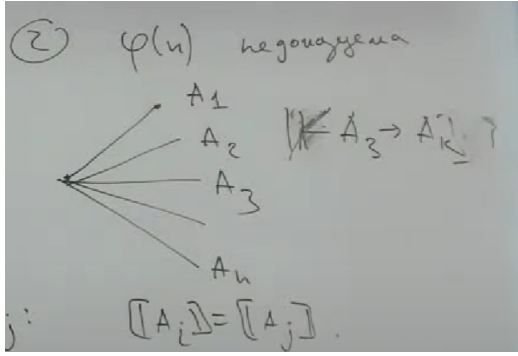 ② φ(n) недоказуема
A1
A2
⊮ A3 → Ak ?
A3
An
j: [[Ai]] = [[Aj]].